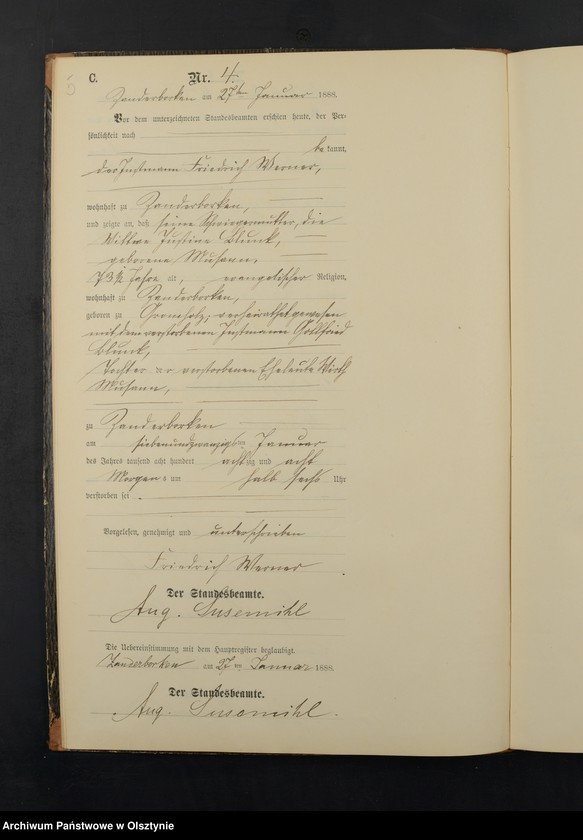 C.
Nr. 4.
Zanderborken am 27ten Januar 1888.
Vor dem unterzeichneten Standesbeamten erschien heute, der Per-
sönlichkeit nach
be kannt,
der Instmann Friedrich Werner,
wohnhaft zu Zanderborken,
und zeigte an, daß seine Schwiegermutter, die
Wittwe Justine Blunck,
geborene Musann,
73½ Jahre alt, evangelischer Religion,
wohnhaft zu Zanderborken,
geboren zu verheirathet gewesen
mit dem verstorbenen Instmann Gottfried
Blunck,
Tochter der verstorbenen Eheleute Wirth
Musann,
zu Zanderborken
am siebenundzwanzigsten Januar
des Jahres tausend acht hundert achtzig und acht
Morgens um halb sechs Uhr
verstorben sei.
Vorgelesen, genehmigt und unterschrieben
Friedrich Werner
Der Standesbeamte.
Aug. Susemihl
Die Uebereinstimmung mit dem Hauptregister beglaubigt.
Zanderborken am 27ten Januar 1888.
Der Standesbeamte.
Aug. Susemihl.
Archiwum Państwowe w Olsztynie